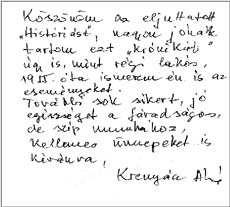 Köszönöm az eljuttatott
"Históriást", nagyon jónak
tartom ezt "krónikát"
úgy is, mint régi lakos,
óta ismerem én is az
eseményeket.
További sok sikert, jó
egészséget a fáradságos,
de szép munkához,
Kellemes ünnepeket is
kívánva,